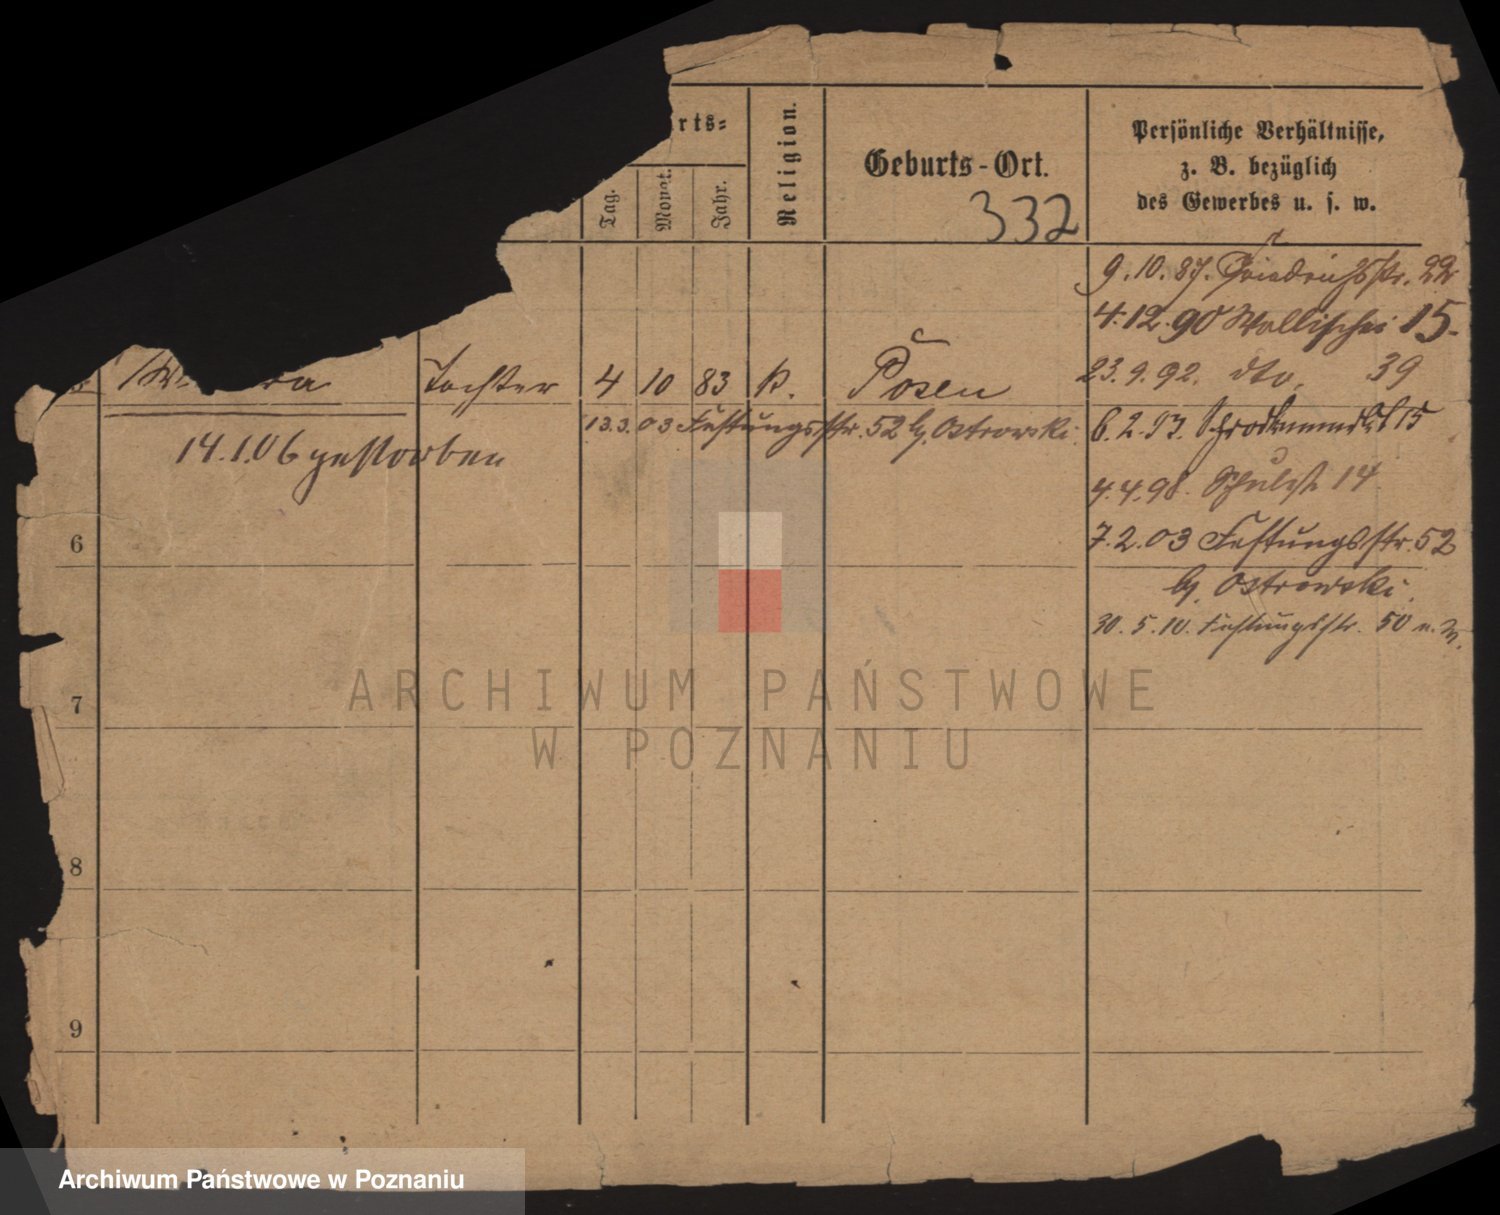 rts=
Tag. Monat. Jahr.
Religion.
Geburts-Ort.
332
Persönliche Verhältnisse,
z. B. bezüglich
des Gewerbes u. s. w.
9.10.87. Friedrichsstr. 22
4.12.90 Wallischei 15.
23.9.92. dto. 39
Tochter 4 10 83 k. Posen
13.3.03 Festungsstr. 52 b/ Ostrowski
6.2.93. 15
14.1.06 gestorben
4.4.98. Schulst. 14
7.2.03 Festungsstr. 52
b/ Ostrowski.
30.5.10. Festungsstr. 50
6
7
8
9
ARCHIWUM PAŃSTWOWE
W POZNANIU
Archiwum Państwowe w Poznaniu